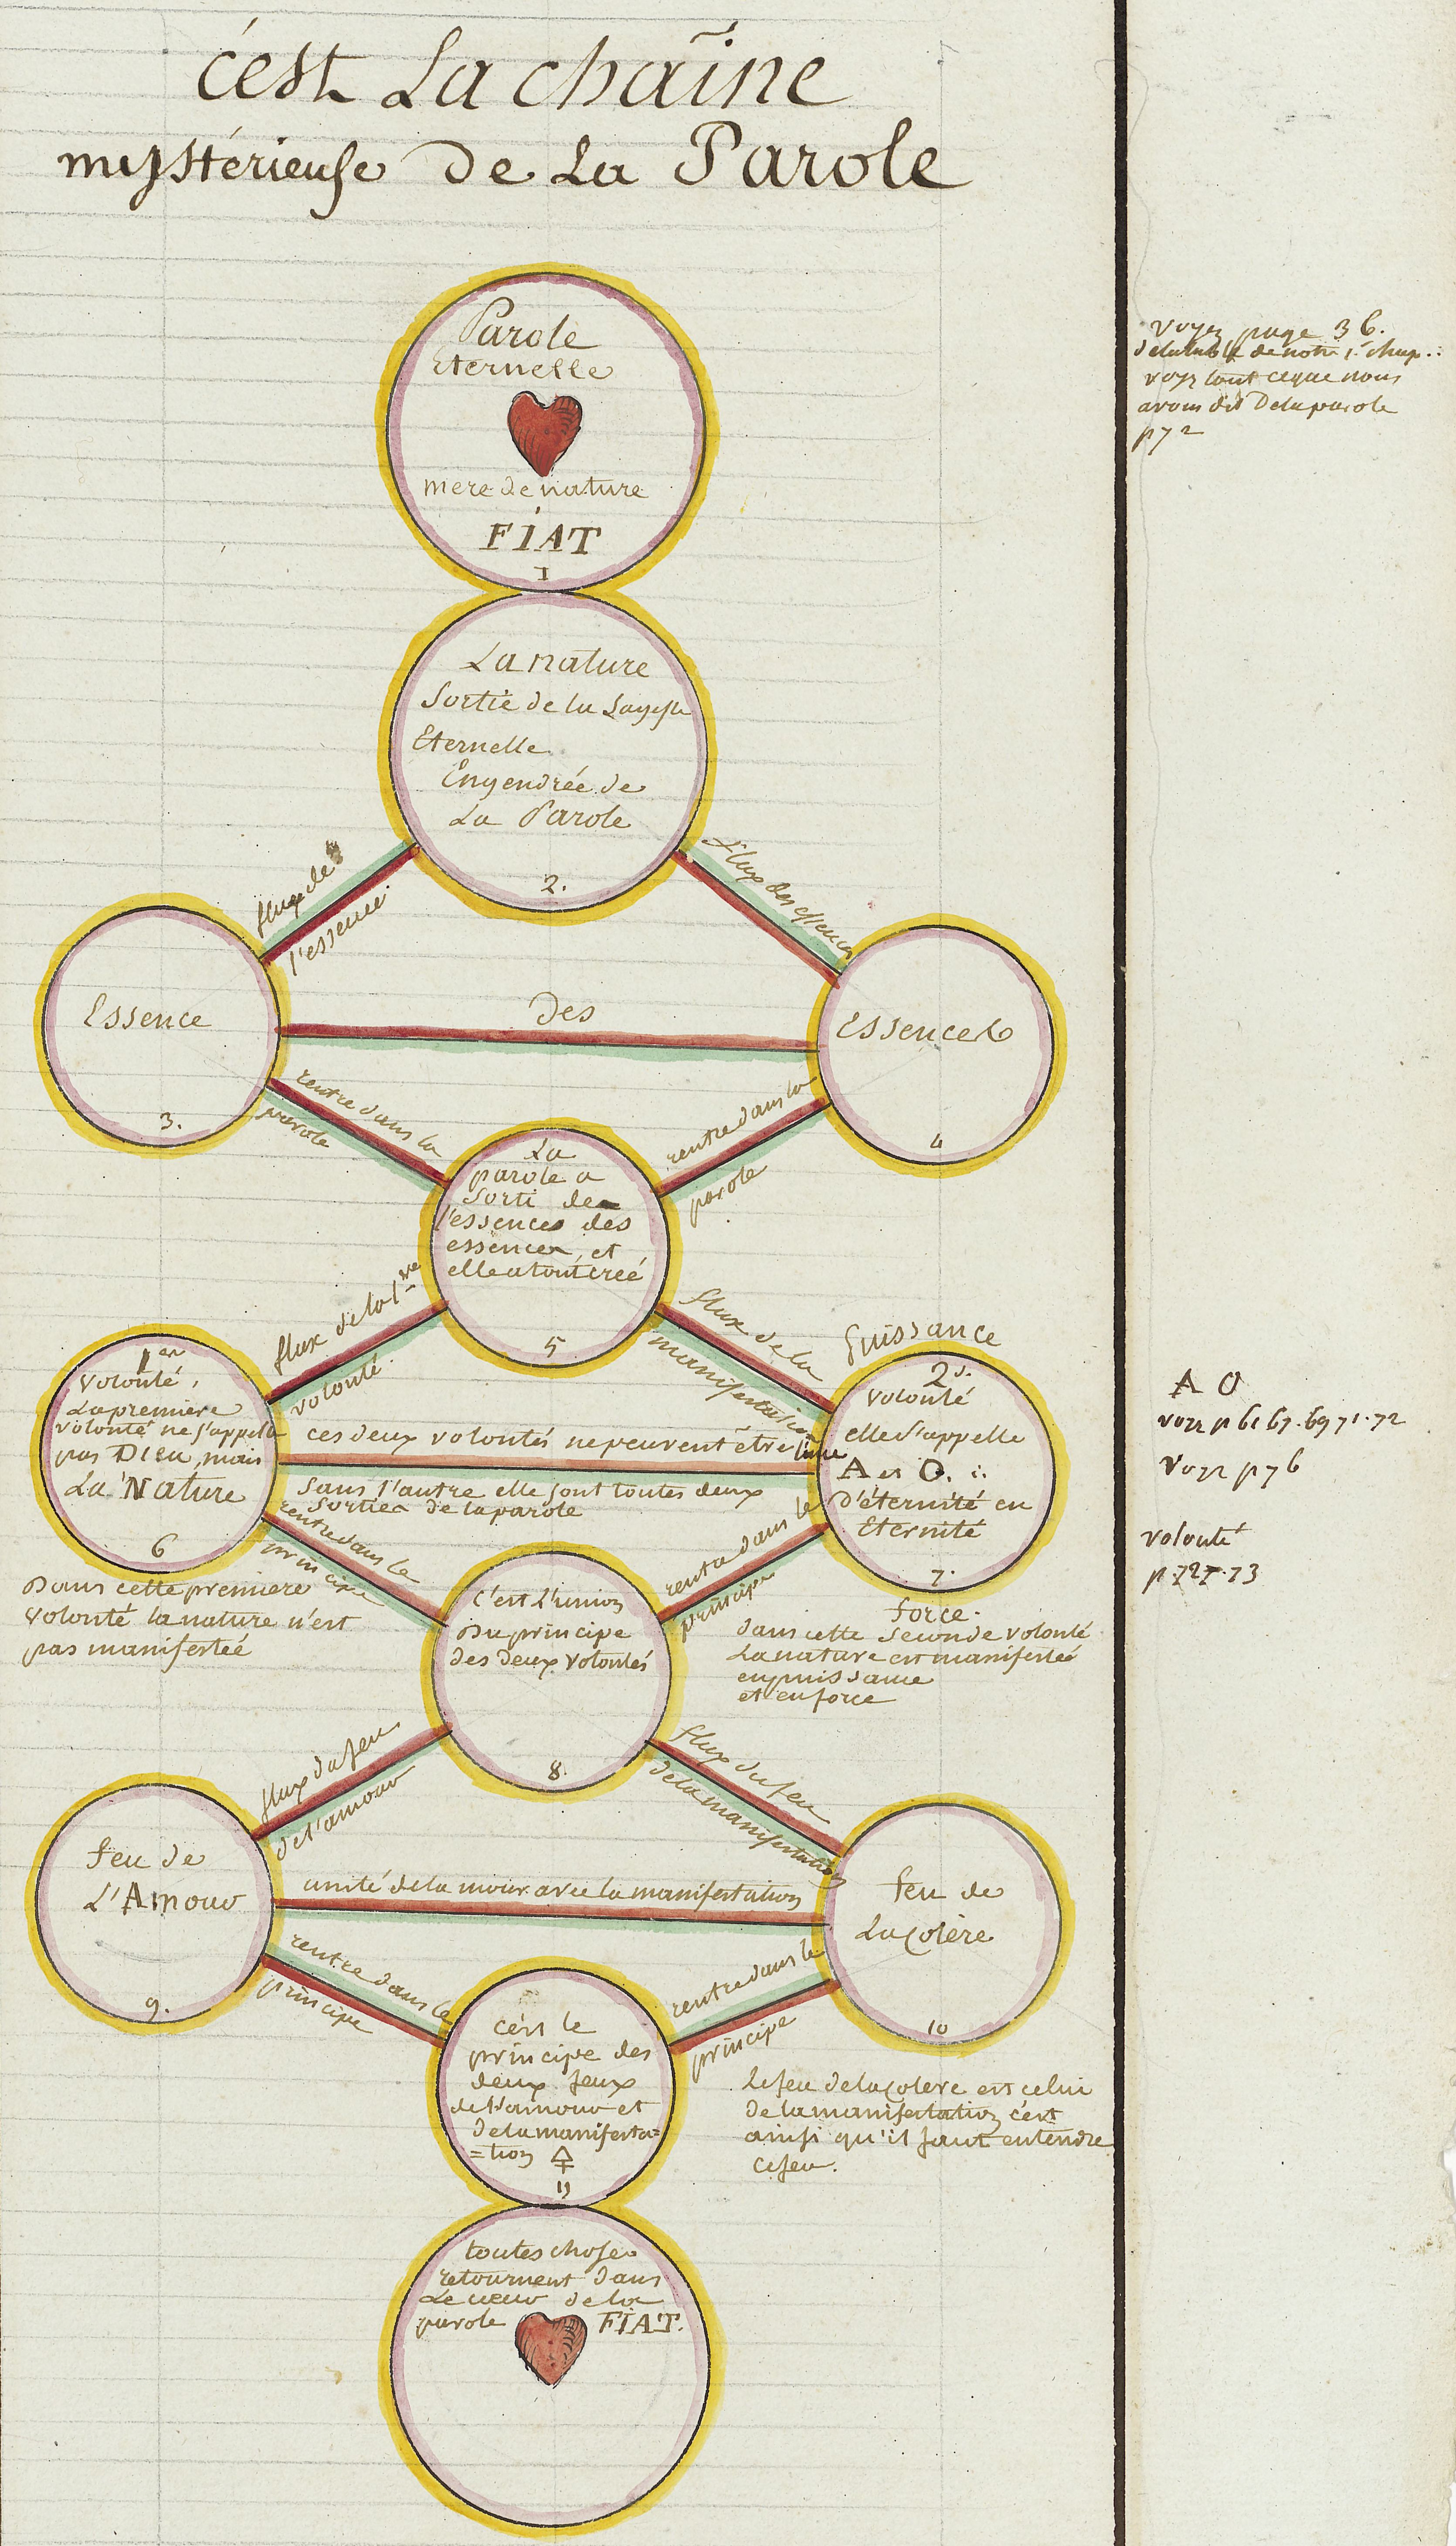 c'est La chaîne
mystérieuse De La Parole
Parole
Eternelle
mere de nature
FIAT
1
La nature
Sortie de la Sagesse
Eternelle
Engendrée de
La Parole
2.
flux de
l'essence
flux des essences
Essence
3.
Des
Essences
4
rentre dans la
parole
rentre dans la
parole
La
parole a
Sorti de
l'essences des
essences, et
elle a tout créé
5
flux de la 1re
volonté
flux de la
manifestation
1er
volonté,
La premiere
volonté ne s'appelle
pas DIEU, mais
La NAture
6
Puissance
2d.
volonté
elle s'appelle
A et O.
D'éternité en
Eternité
7.
force.
ces deux volontés ne peuvent être l'une
Sans l'autre elle sont toutes deux
Sorties de la parole
rentre dans le
principe
rentre dans le
principe
Dans cette premiere
Volonté la nature n'est
pas manifesteé
dans cette Seconde volonté
La nature est manifesteé
en puissance
et en force
C'est L'union
Du principe
des deux volontés
8.
flux du feu
de l'amour
flux du feu
de la manifestation
feu de
L'Amour
9.
unité de la mour avec la manifestation
feu de
La Colère
10
rentre dans le
principe
rentre dans le
principe
c'est le
principe des
deux feux
de l'amour et
de la manifesta=
=tion
11
Le feu de la Colere est celui
de la manifestation c'est
ainsi qu'il faut entendre
ce feu.
toutes choses
retournent dans
Le cœur de la
parole FIAT.
voyez page 36.
de notre 1r chap.
voyez tout ce que nous
avons dit De la parole
p 72
A O
voyez p 61 67. 69 71. 72
Voyez p 76
volonté
p. 72. 73